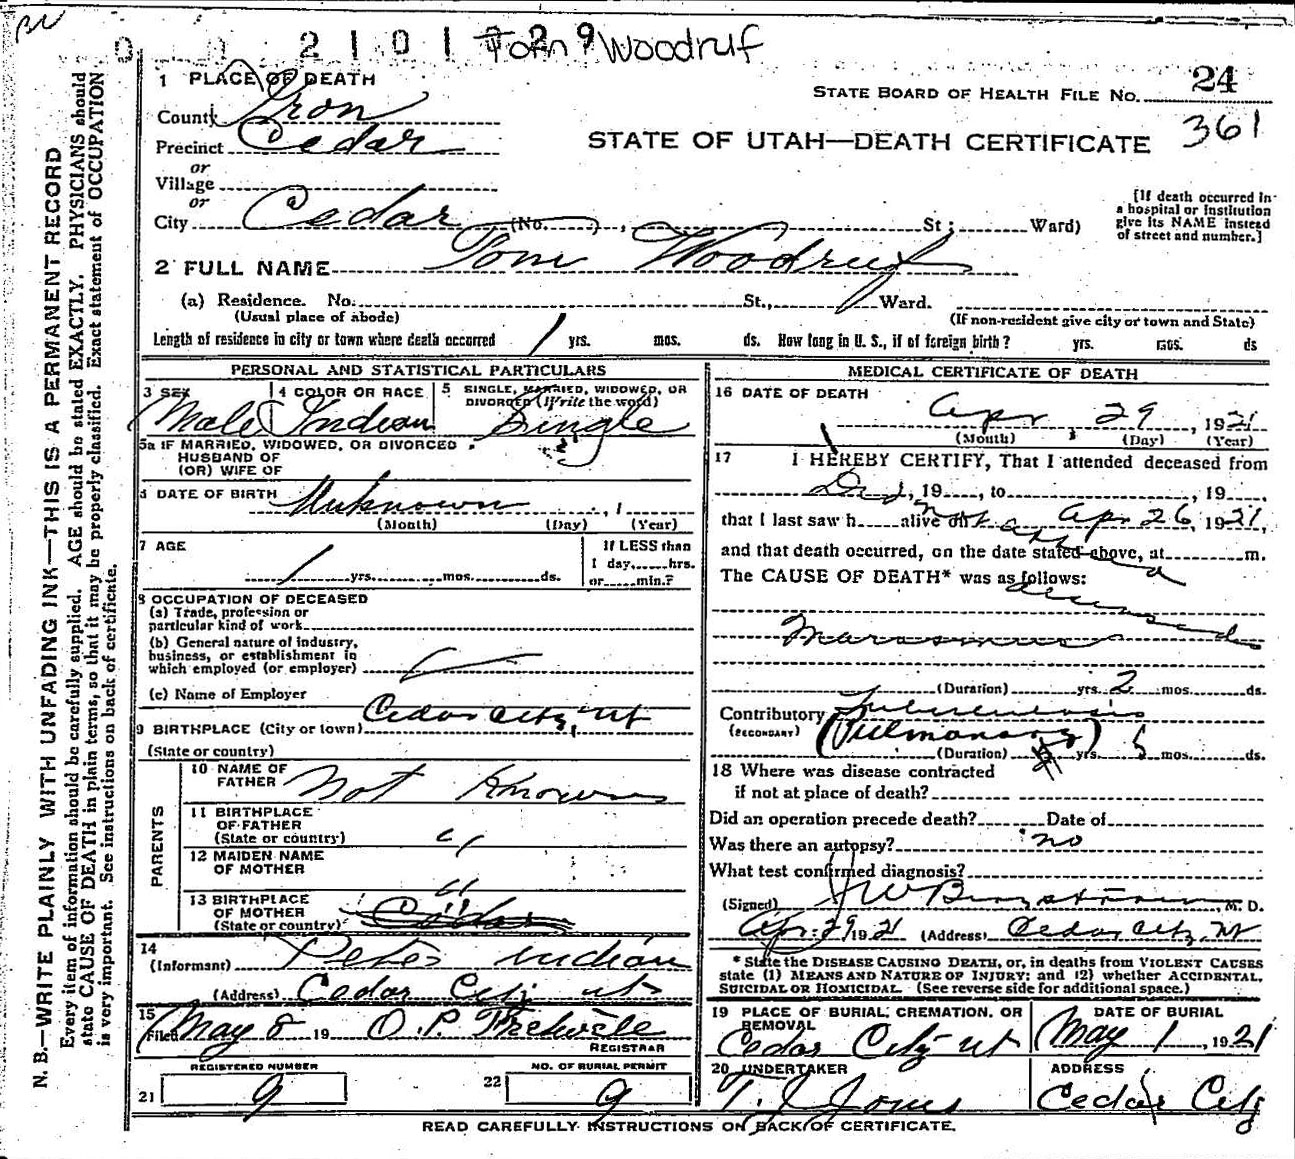 BW
0 2101729 Tom Woodruf
1 PLACE OF DEATH
County Iron
Precinct Cedar
or
Village
or
City Cedar (No. ) , St ; Ward)
STATE BOARD OF HEALTH FILE NO. 24
361
STATE OF UTAH—DEATH CERTIFICATE
[If death occurred in
a hospital or institution
give its NAME instead
of street and number.]
2 FULL NAME Tom Woodruf
(a) Residence. No. St., Ward.
(Usual place of abode) (If non-resident give city or town and State)
Length of residence in city or town where death occurred 1 yrs. mos. ds. How long in U. S., if of foreign birth? yrs. mos. ds
N. B.—WRITE PLAINLY WITH UNFADING INK—THIS IS A PERMANENT RECORD
Every item of information should be carefully supplied. AGE should be stated EXACTLY. PHYSICIANS should
state CAUSE OF DEATH in plain terms, so that it may be properly classified. Exact statement of OCCUPATION
is very important. See instructions on back of certificate.
PERSONAL AND STATISTICAL PARTICULARS
3 SEX 4 COLOR OR RACE 5 SINGLE, MARRIED, WIDOWED, OR
DIVORCED (Write the word)
Male Indian Single
5a IF MARRIED, WIDOWED, OR DIVORCED
HUSBAND OF
(OR) WIFE OF
6 DATE OF BIRTH Unknown , 1
(Month) (Day) (Year)
7 AGE If LESS than
1 day, hrs.
1 yrs. mos. ds. or min.?
8 OCCUPATION OF DECEASED
(a) Trade, profession or
particular kind of work
(b) General nature of industry,
business, or establishment in
which employed (or employer)
(c) Name of Employer
9 BIRTHPLACE (City or town) Cedar City, Ut
(State or country)
PARENTS
10 NAME OF
FATHER Not Known
11 BIRTHPLACE
OF FATHER
(State or country) "
12 MAIDEN NAME
OF MOTHER "
13 BIRTHPLACE
OF MOTHER "
(State or country) Cedar
14
(Informant) Petes Indian
(Address) Cedar City Ut
15
Filed May 8 19 O. P.
REGISTRAR
REGISTERED NUMBER NO. OF BURIAL PERMIT
21 9 22 9
MEDICAL CERTIFICATE OF DEATH
16 DATE OF DEATH
Apr 29 , 1921
(Month) (Day) (Year)
17 I HEREBY CERTIFY, That I attended deceased from
Did , 19 , to , 19 ,
that I last saw h alive on not attend Apr 26, 1921,
and that death occurred, on the date stated above, at m.
The CAUSE OF DEATH* was as follows:
deceased
Marasmus
(Duration) yrs. 2 mos. ds.
Contributory Tuberculosis
(SECONDARY) (Pulmonary)
(Duration) yrs. 5 mos. ds.
18 Where was disease contracted
if not at place of death?
Did an operation precede death? Date of
Was there an autopsy? no
What test confirmed diagnosis?
(Signed) J W , M. D.
Apr 29 1921 (Address) Cedar City, Ut
* State the DISEASE CAUSING DEATH, or, in deaths from VIOLENT CAUSES
state (1) MEANS AND NATURE OF INJURY; and (2) whether ACCIDENTAL,
SUICIDAL OR HOMICIDAL. (See reverse side for additional space.)
19 PLACE OF BURIAL, CREMATION, OR
REMOVAL DATE OF BURIAL
Cedar City Ut May 1 , 1921
20 UNDERTAKER ADDRESS
T. J Jones Cedar City
READ CAREFULLY INSTRUCTIONS ON BACK OF CERTIFICATE.